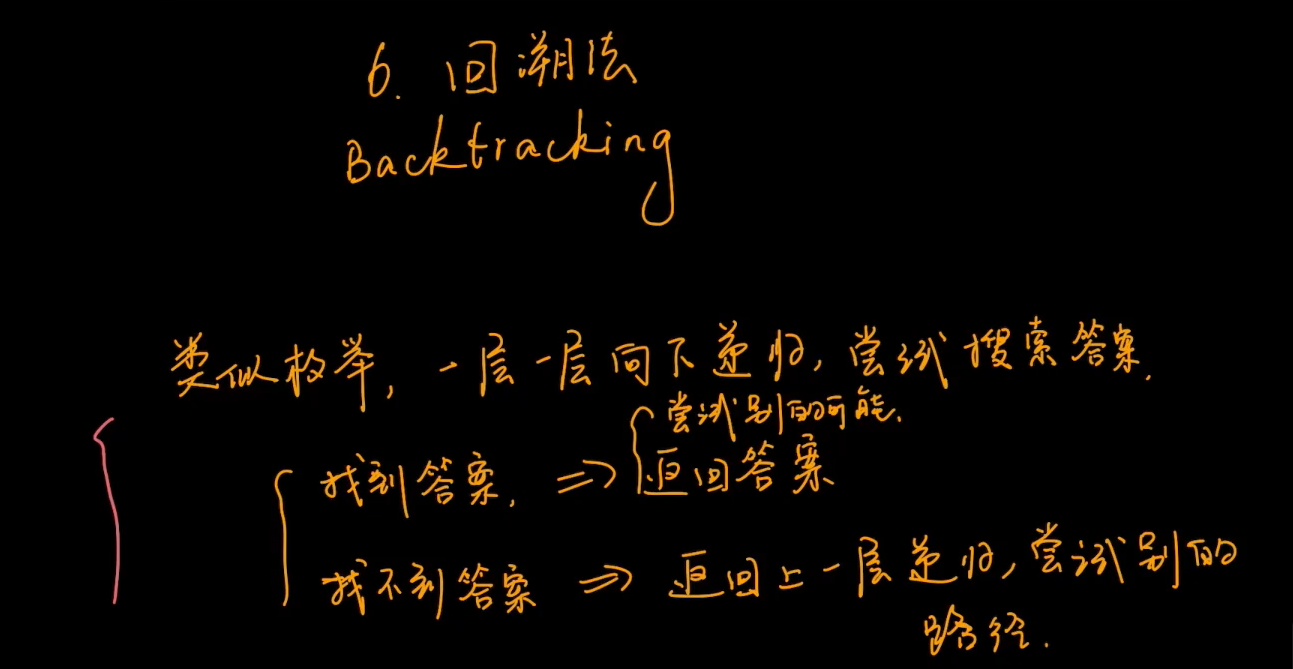 6. 回溯法
Backtracking
类似枚举, 一层一层向下递归, 尝试搜索答案.
尝试别的可能.
找到答案, ⇒ 返回答案
找不到答案 ⇒ 返回上一层递归, 尝试别的
路径.